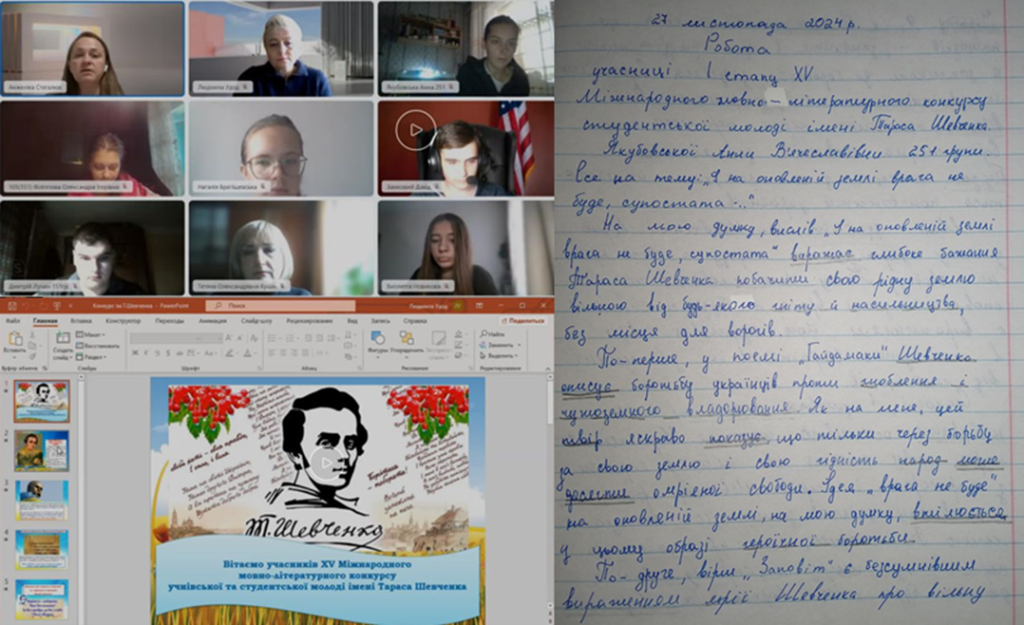 Анжеліка Стегалюк
Людмила Удод
Якубовська Анна 251
Наталія Братішевська
Замковий Давід
Дмитрій Лупин
Тетяна Олександрівна
Віолетта Новикова
Конкурс ім.Т.Шевченка - PowerPoint
Поиск
Людмила Удод
Файл Главная Вставка Конструктор Переходы Анимация Слайд-шоу Рецензирование Вид Запись Справка
Поделиться
Вставить
Создать слайд
Макет
Восстановить
Раздел
Фигуры Упорядочить
Найти
Заменить
Выделить
Буфер обмена Слайды Шрифт Абзац Рисование Редактирование
1
2
3
4
5
Т.Шевченко
Вітаємо учасників XV Міжнародного
мовно-літературного конкурсу
учнівської та студентської молоді імені Тараса Шевченка
27 листопада 2024 р.
Робота
учасниці І етапу XV
Міжнародного мовно-літературного конкурсу
студентської молоді імені Тараса Шевченка
Якубовської Анни Вячеславівни 251 групи.
Есе на тему: „І на оновленій землі врага не
буде, супостата..."
На мою думку, вислів „І на оновленій землі
врага не буде, супостата" виражає глибоке бажання
Тараса Шевченка побачити свою рідну землю
вільною від будь-якого гніту й насильництва,
без місця для ворогів.
По-перше, у поемі „Гайдамаки" Шевченко
описує боротьбу українців проти гноблення і
чужоземного владарювання. Як на мене, цей
твір яскраво показує, що тільки через борьбу
за свою землю і свою гідність народ може
досягти омріяної свободи. Ідея „врага не буде"
на оновленій землі, на мою думку, втілюється
у цьому образі героїчної боротьби.
По-друге, вірш „Заповіт" є безсумнівним
вираженням мрії Шевченка про вільну